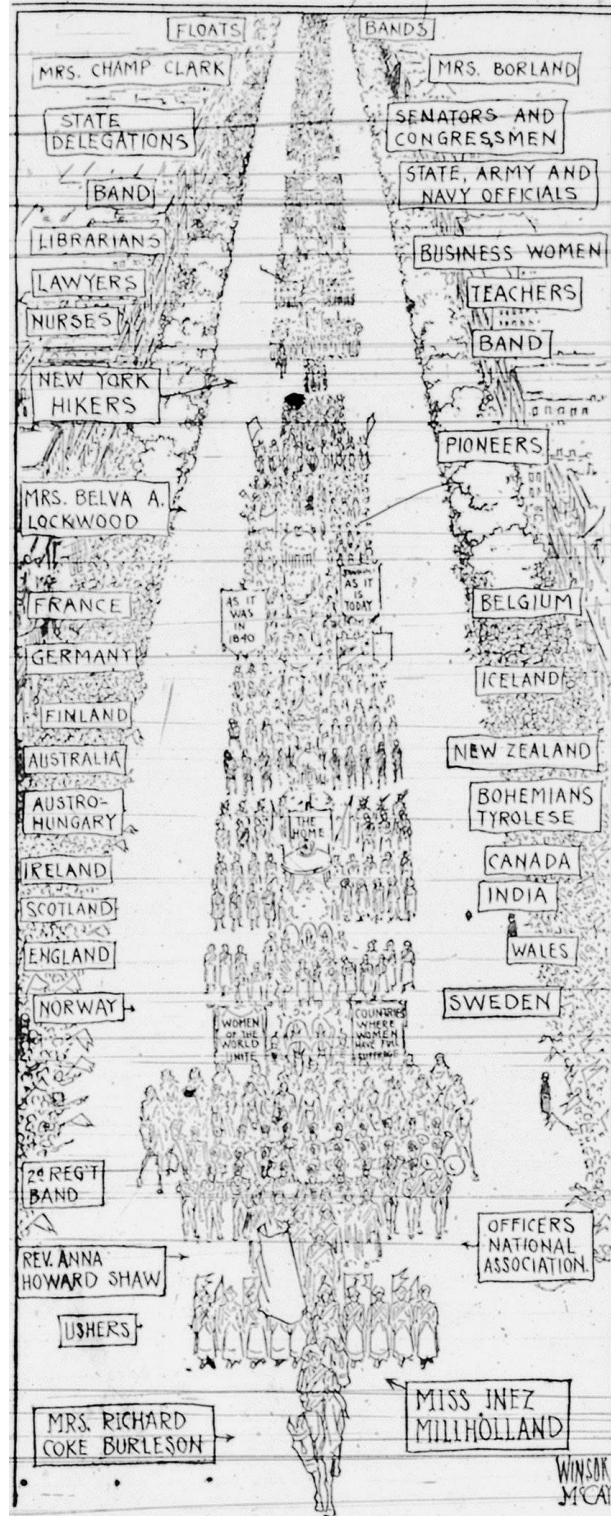 FLOATS
BANDS
MRS. CHAMP CLARK
MRS. BORLAND
STATE
DELEGATIONS
SENATORS AND
CONGRESSMEN
BAND
STATE, ARMY AND
NAVY OFFICIALS
LIBRARIANS
BUSINESS WOMEN
LAWYERS
TEACHERS
NURSES
BAND
NEW YORK
HIKERS
PIONEERS
MRS. BELVA A.
LOCKWOOD
FRANCE
AS IT
WAS
IN
1840
AS IT
IS
TODAY
BELGIUM
GERMANY
ICELAND
FINLAND
AUSTRALIA
NEW ZEALAND
AUSTRO-
HUNGARY
THE
HOME
BOHEMIANS
TYROLESE
IRELAND
CANADA
SCOTLAND
INDIA
ENGLAND
WALES
NORWAY
SWEDEN
WOMEN
OF THE
WORLD
UNITE
COUNTRIES
WHERE
WOMEN
HAVE FULL
SUFFRAGE
2d REG'T
BAND
REV. ANNA
HOWARD SHAW
OFFICERS
NATIONAL
ASSOCIATION.
USHERS
MISS INEZ
MILLHOLLAND
MRS. RICHARD
COKE BURLESON
WINSOR
McCAY